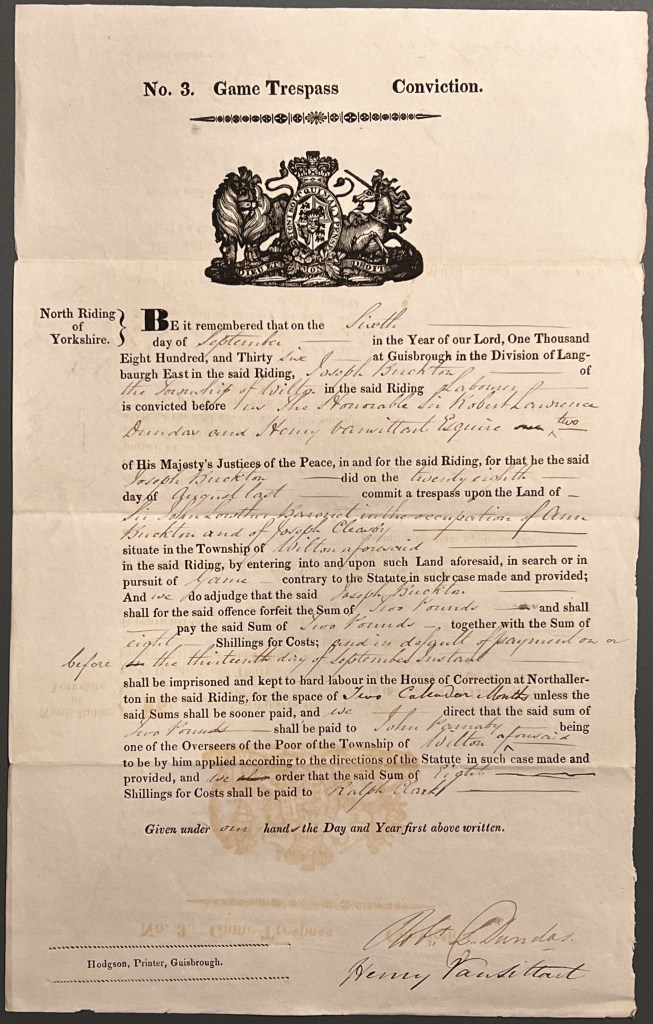 No. 3. Game Trespass Conviction.
HONI SOIT QUI MAL Y PENSE
DIEU ET MON DROIT
North Riding
of
Yorkshire.
BE it remembered that on the Sixth
day of September in the Year of our Lord, One Thousand
Eight Hundred, and Thirty six at Guisbrough in the Division of Lang-
baurgh East in the said Riding, Joseph Buckton of
the Township of Wilton in the said Riding Labourer
is convicted before us The Honorable Sir Robert Lawrence
Dundas and Henry Vansittart Esquire two
of His Majesty's Justices of the Peace, in and for the said Riding, for that he the said
Joseph Buckton did on the twenty eighth
day of August last commit a trespass upon the Land of
Sir John Lowther Baronet in the occupation of Ann
Buckton and of Joseph Cleasby
situate in the Township of Wilton aforesaid
in the said Riding, by entering into and upon such Land aforesaid, in search or in
pursuit of Game contrary to the Statute in such case made and provided;
And we do adjudge that the said Joseph Buckton
shall for the said offence forfeit the Sum of Two Pounds and shall
pay the said Sum of Two Pounds together with the Sum of
eight Shillings for Costs; and in default of payment on or
before the thirteenth day of September Instant
shall be imprisoned and kept to hard labour in the House of Correction at Northaller-
ton in the said Riding, for the space of Two Calendar Months unless the
said Sums shall be sooner paid, and we direct that the said sum of
Two Pounds shall be paid to John being
one of the Overseers of the Poor of the Township of Wilton aforesaid
to be by him applied according to the directions of the Statute in such case made and
provided, and we order that the said Sum of Eight
Shillings for Costs shall be paid to Ralph Clark
Given under our hands the Day and Year first above written.
Robt. L. Dundas.
Henry Vansittart
Hodgson, Printer, Guisbrough.